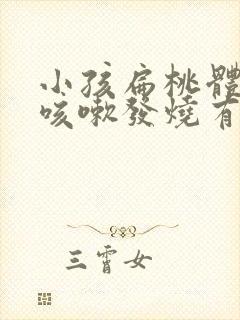 小孩扁桃體
咳嗽發燒有
三霄女